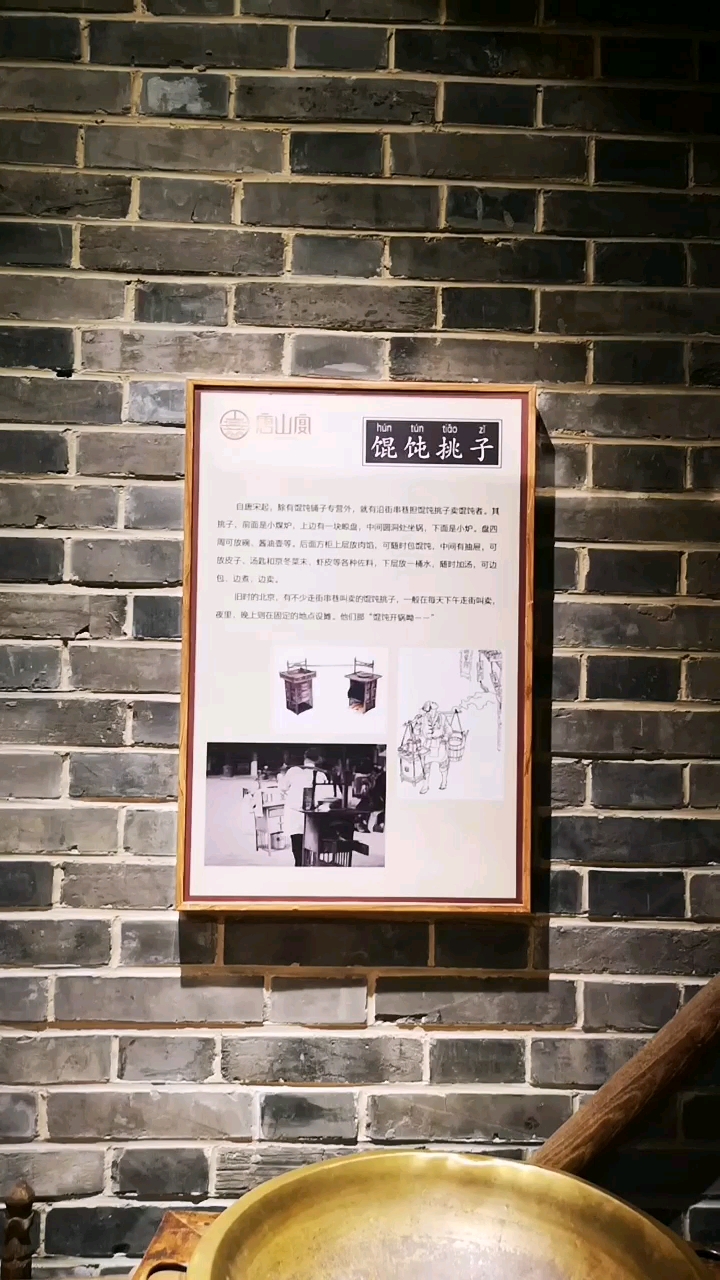 唐山宴
hún tún tiāo zǐ
馄饨挑子
自唐宋起，除有馄饨铺子专营外，就有沿街串巷担馄饨挑子卖馄饨者。其
挑子，前面是小煤炉，上边有一块帐盘，中间圆洞处坐锅，下面是小炉。盘四
周可放碗、酱油壶等。后面方柜上层放肉馅，可随时包馄饨，中间有抽屉，可
放皮子、汤匙和京冬菜末、虾皮等各种佐料，下层放一桶水，随时加汤，可边
包、边煮、边卖。
旧时的北京，有不少走街串巷叫卖的馄饨挑子，一般在每天下午走街叫卖，
夜里、晚上则在固定的地点设摊。他们喊“馄饨开锅呦——”